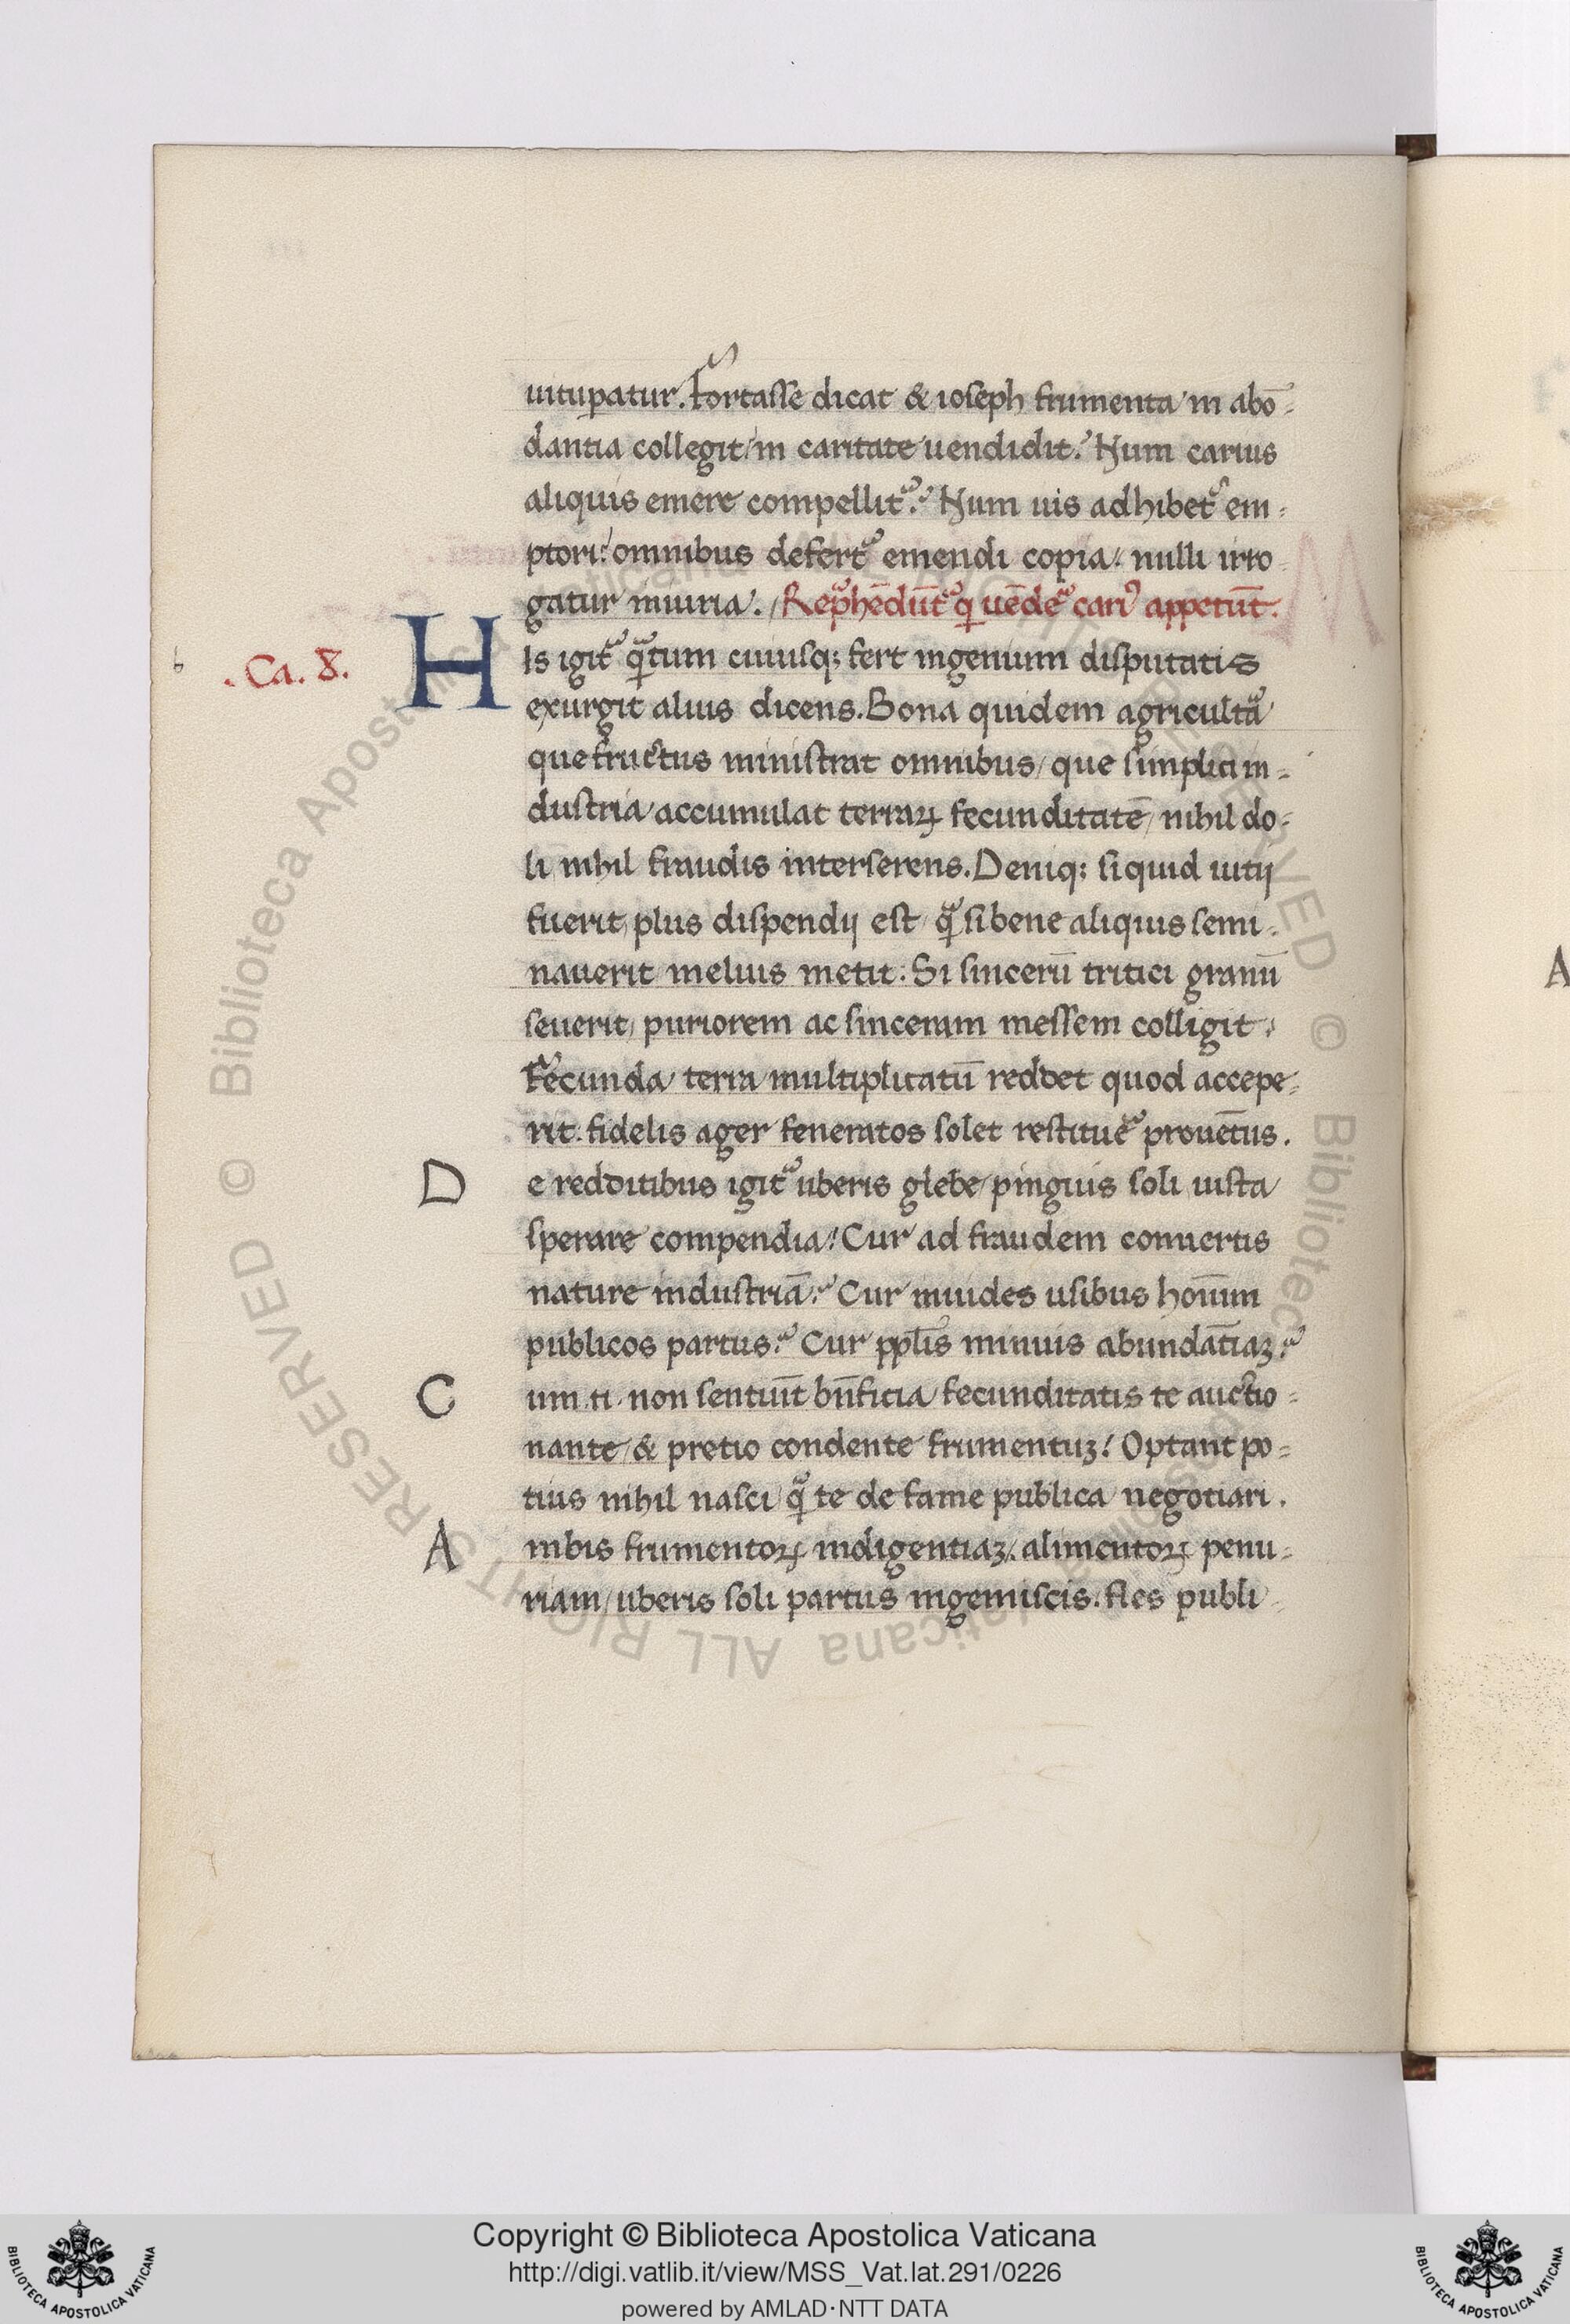 uitupatur. Fortasse dicat & ioseph frumenta in abō-
dantia collegit/in caritate uendidit? Num carius
aliquis emere compellit᷑? Num uis adhibet᷑ em-
ptori? omnibus defert᷑ emendi copia: nulli irro
gatur iniuria. Rep̃hēdūt᷑ q uēde᷑ cariꝰ appetūt.
.Ca. 8.
HIs igit᷑ qᷓtum cuiusq; fert ingenium disputatis
exurgit alius dicens. Bona quidem agricultᷓa
que fructus ministrat omnibus/que simplici in-
dustria accumulat terraꝝ fecunditatē/nihil do-
li nihil fraudis interserens. Deniq; siquid uitij
fuerit, plus dispendij est/qᷓ si bene aliquis semi-
nauerit melius metit: Si sincerū tritici granū
seuerit, puriorem ac sinceram messem colligit:
Fecunda terra multiplicatū reddet quod accepe-
rit: fidelis ager feneratos solet restitue᷑ prouētus.
De redditibus igit᷑ uberis glebe/pinguis soli iusta
sperare compendia! Cur ad fraudem conuertis
nature industriā? Cur inuides usibus hoīum
publicos partus? Cur pplīs minuis abundātiaꝫ?
Cum ti non sentiūt bn̄ficia fecunditatis te auctio-
nante/& pretio condente frumentuꝫ! Optant po-
tius nihil nasci qᷓ te de fame publica negotiari.
Ambis frumentoꝝ indigentiaꝫ: alimentoꝝ penu-
riam/uberis soli partus ingemiscis. fles publi-
Copyright © Biblioteca Apostolica Vaticana
http://digi.vatlib.it/view/MSS_Vat.lat.291/0226
powered by AMLAD·NTT DATA